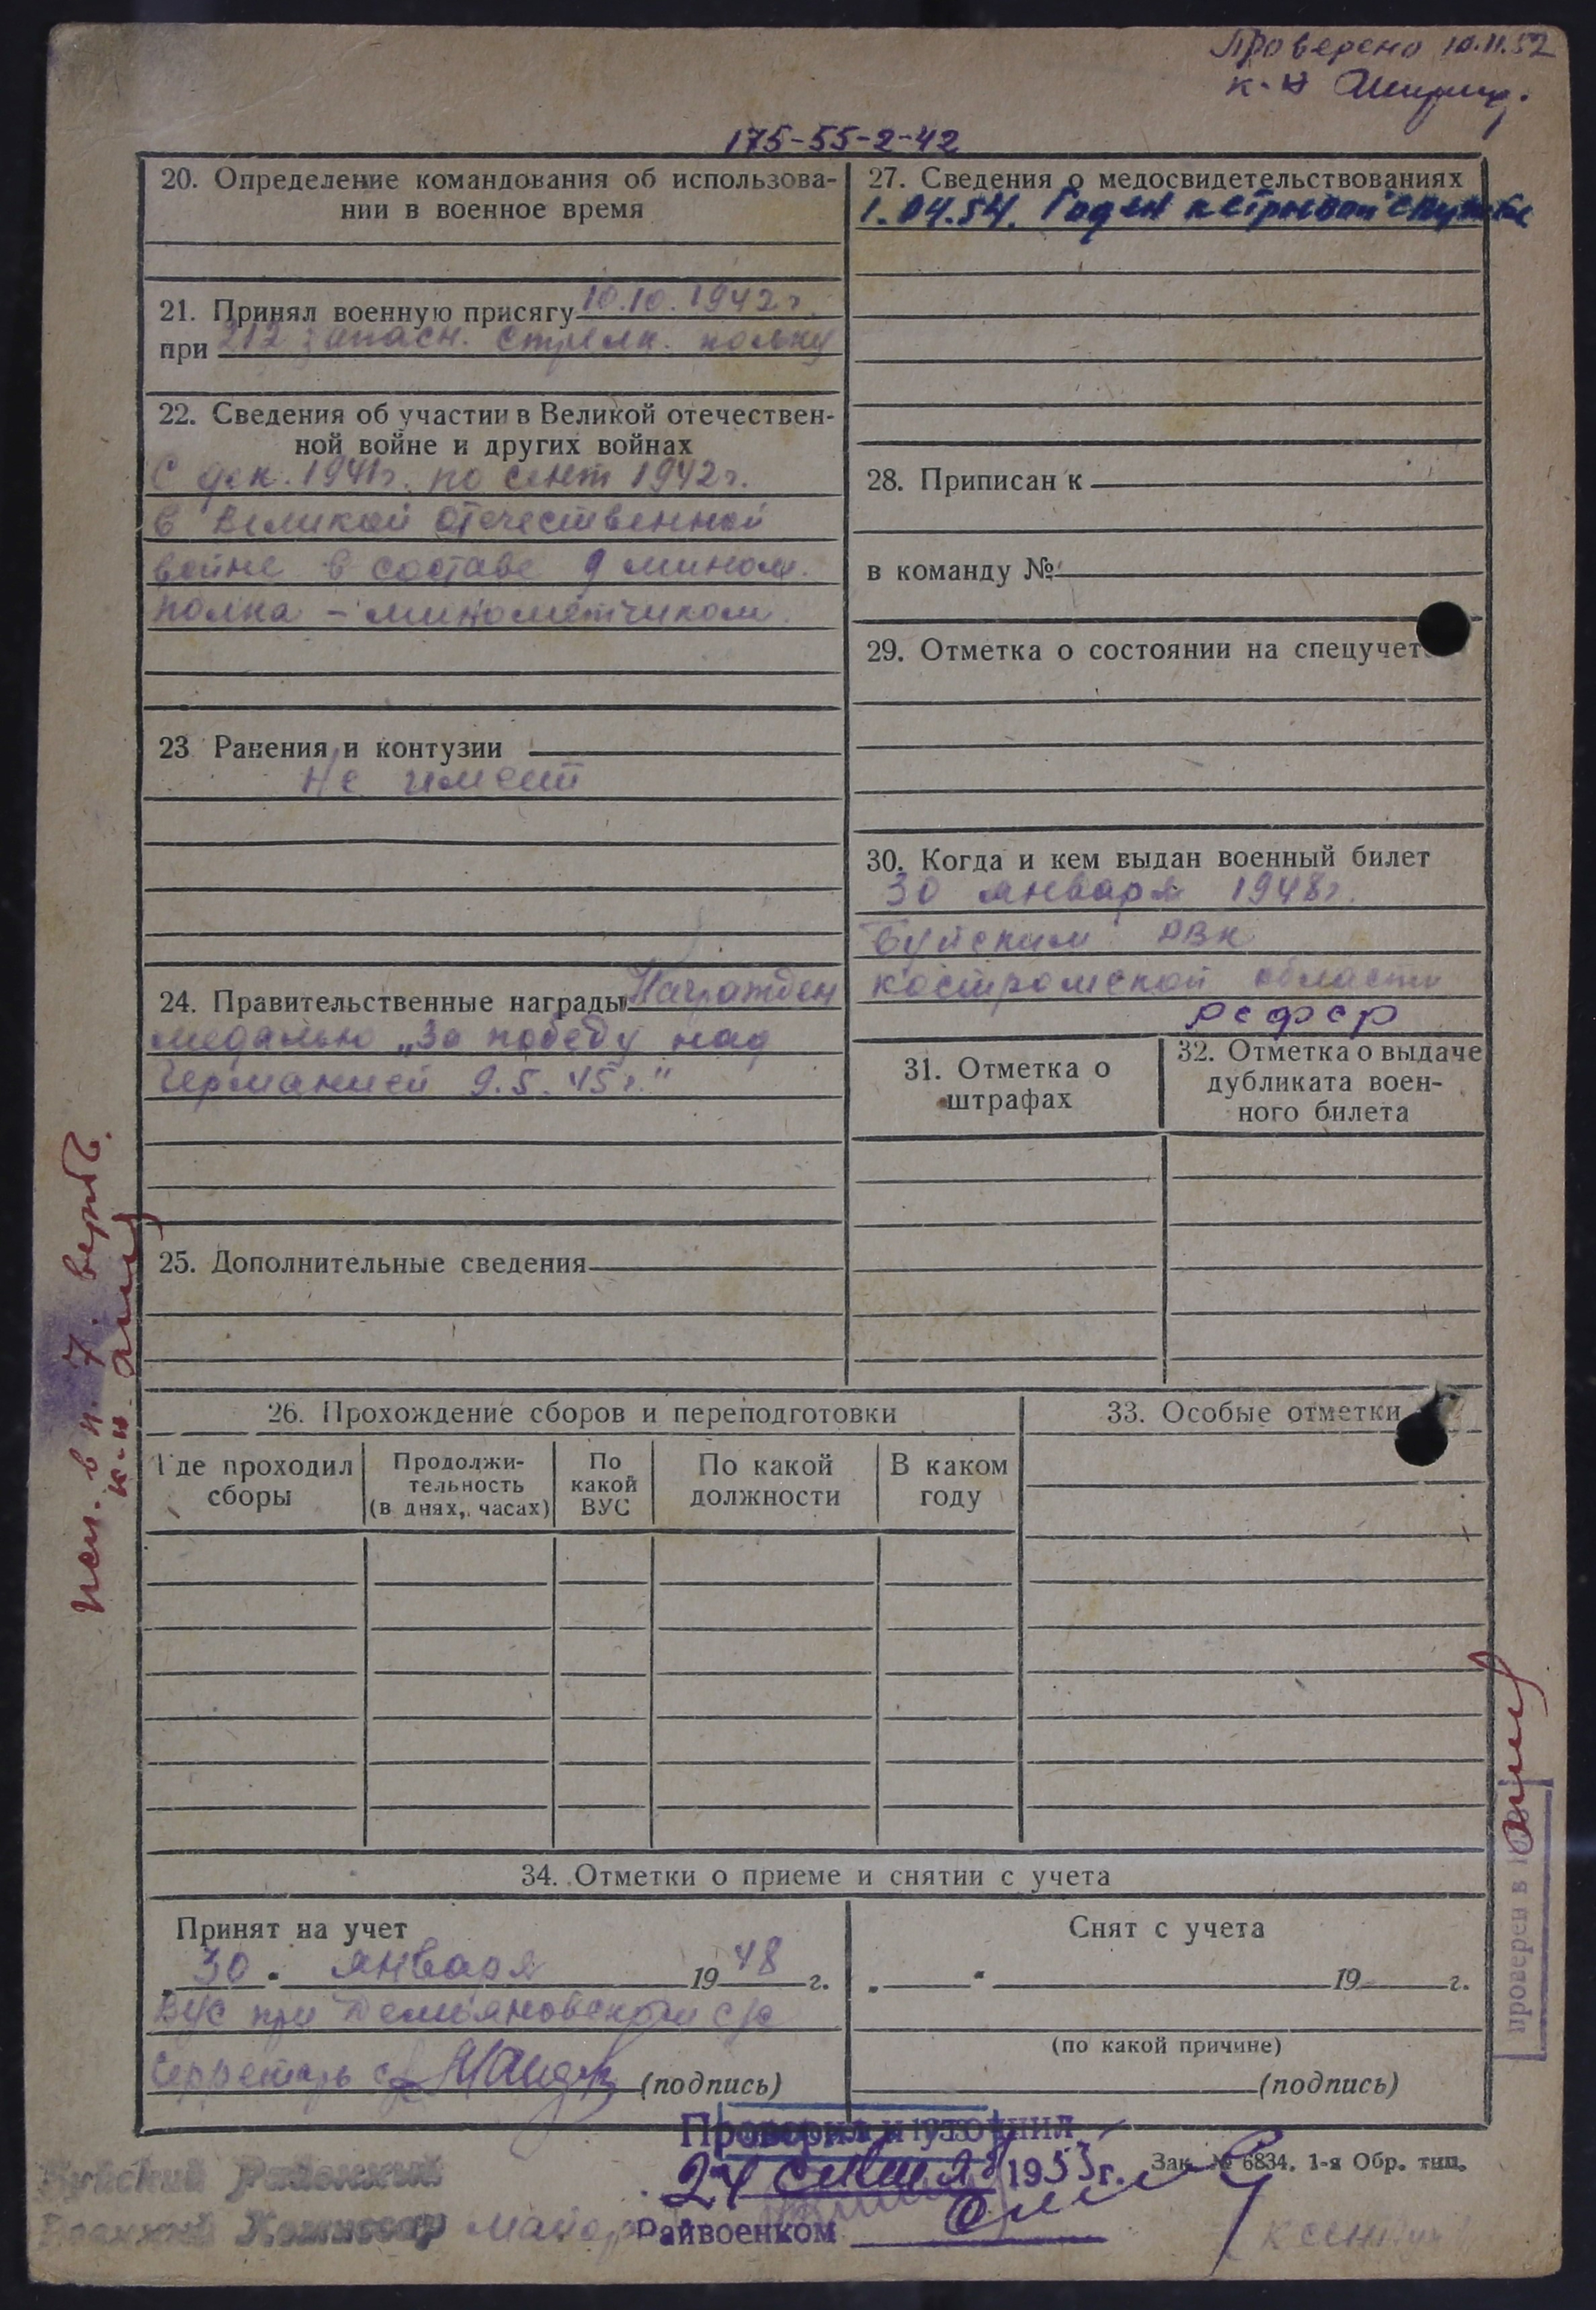 Проверено 10.11.52
к-н
175-55-2-42
20. Определение командования об использова-
нии в военное время
21. Принял военную присягу 10.10.1942 г.
при 212 запасн. стрелк. полку
22. Сведения об участии в Великой отечествен-
ной войне и других войнах
С дек. 1941 г. по сент 1942 г.
в Великой Отечественной
войне в составе 9 мином.
полка – минометчиком.
23 Ранения и контузии
Не имеет
24. Правительственные награды Награжден
медалью „За победу над
Германией 9.5.45 г."
25. Дополнительные сведения
27. Сведения о медосвидетельствованиях
1.04.54. Годен к строевой службе
28. Приписан к
в команду №
29. Отметка о состоянии на спецучет
30. Когда и кем выдан военный билет
30 января 1948 г.
Буйским РВК
Костромской области
РСФСР
31. Отметка о
штрафах
32. Отметка о выдаче
дубликата воен-
ного билета
26. Прохождение сборов и переподготовки
Где проходил
сборы
Продолжи-
тельность
(в днях, часах)
По
какой
ВУС
По какой
должности
В каком
году
33. Особые отметки
34. Отметки о приеме и снятии с учета
Принят на учет
30 января 1948 г.
ВУС при Демьяновском с/с
Секретарь с/с (подпись)
Снят с учета
„ " 19 г.
(по какой причине)
(подпись)
Проверил и уточнил
24 1953 г.
Райвоенком
Зак. № 6834. 1-я Обр. тип.
Буйский Районный
Военный Комиссар майор
исп. в п. 7.
к-н
проверен в